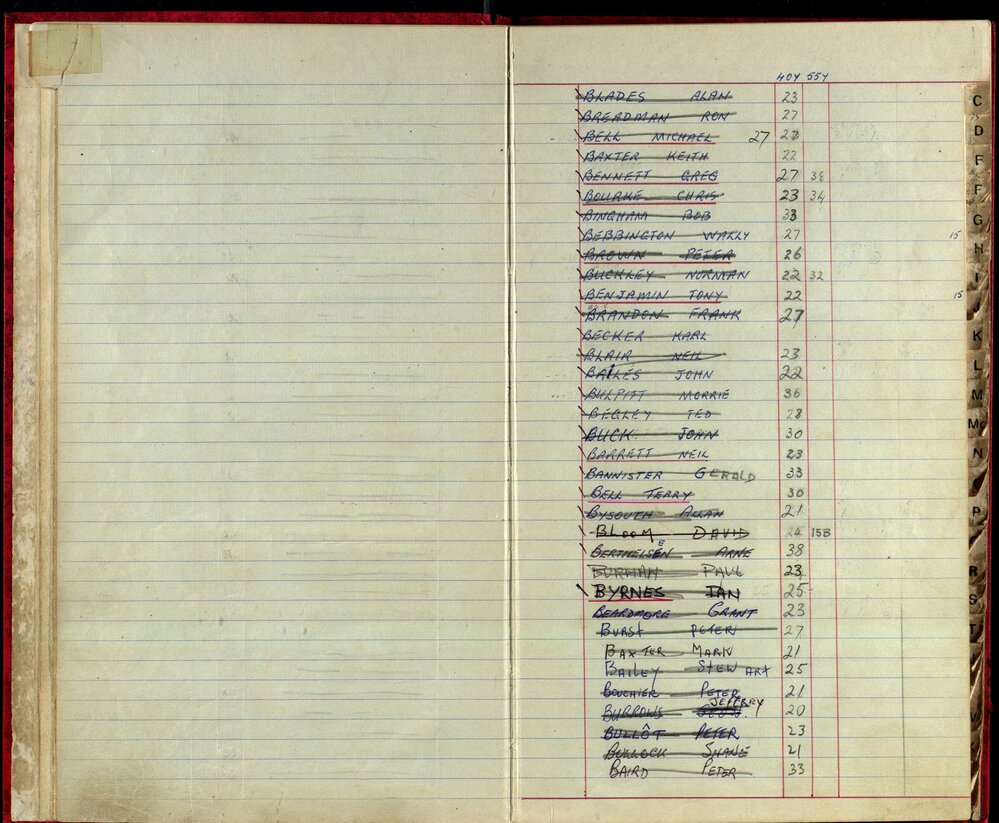 40Y 55Y
BLADES ALAN 23
BREADMAN RON 27
BELL MICHAEL 27 27
BAXTER KEITH 22
BENNETT GREG 27 34
BOURKE CHRIS 23 34
BINGHAM BOB 33
BEBBINGTON WALLY 27 15
BROWN PETER 26
BUCKLEY NORMAN 22 32
BENJAMIN TONY 22 15
BRANDON FRANK 27
BECKER KARL
BLAIR NEIL 23
BAILES JOHN 22
BULPITT MORRIE 36
BEGLEY TED 28
BUCK JOHN 30
BARRETT NEIL 23
BANNISTER GERALD 33
BELL TERRY 30
BYSOUTH ALLAN 21
BLOOM DAVID 24 15B
BERTHELSEN ARNE 38
PAUL 23
BYRNES IAN 25
BEARDMORE GRANT 23
BURST PETER 27
BAXTER MARK 21
BAILEY STEWART 25
BOUCHIER PETER 21
BURROWS JEFFREY 20
BULLÔT PETER 23
BULLOCK SHANE 21
BAIRD PETER 33
C
D
E
F
G
H
I
J
K
L
M
Mc
N
P
R
S
T